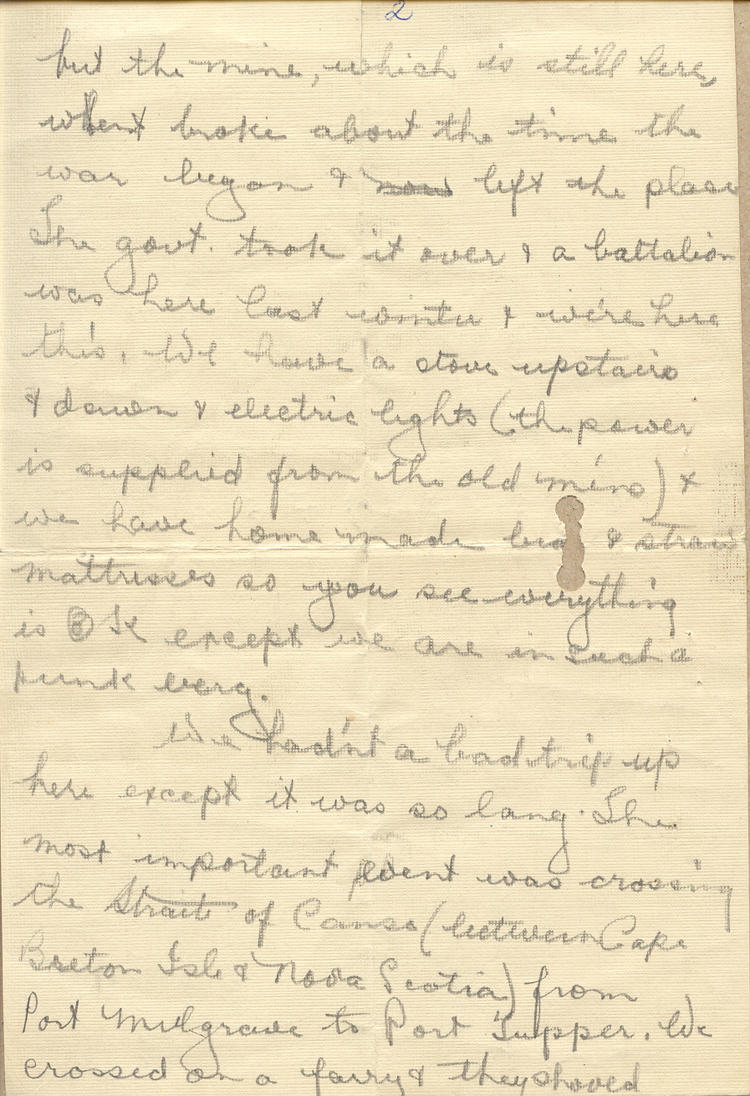 2
but the mine, which is still here,
went broke about the time the
war began & now left the place
The govt. took it over & a battalion
was here last winter & we're here
this. We have a stove upstairs
& down & electric lights (the power
is supplied from the old mine) &
we have home made & straw
mattrisses so you see everything
is OK except we are in such a
punk berg.
We hadn't a bad trip up
here except it was so long. The
most important event was crossing
the Strait of Canso (between Cape
Breton Isle & Nova Scotia) from
Port Mulgrave to Port Tupper. We
crossed on a farry & they shoved